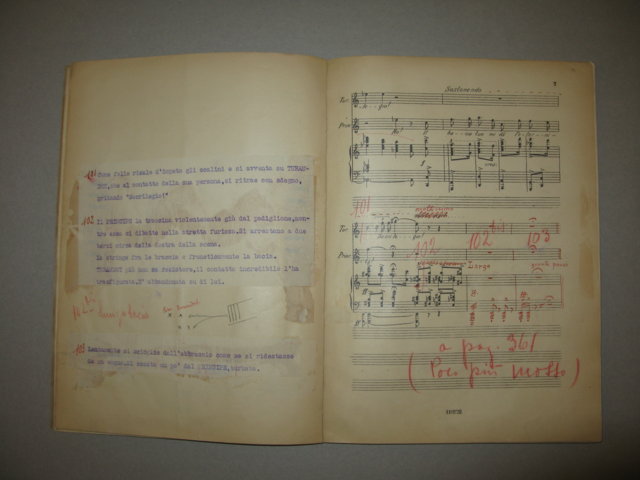 101 Come folle risale d'impeto gli scalini e si avventa su TURAN-
DOT, che al contatto della sua persona, si ritrae con sdegno,
gridando "Sacrilegio!"
102 Il PRINCIPE la trascina violentemente giù dal padiglione, men-
tre essa si dibatte nella stretta furiosa. Si arrestano a due
terzi circa della destra della scena.
La stringe fra le braccia e freneticamente la bacia.
TURANDOT più non sa resistere, il contatto incredibile l'ha
trasfigurata. E' abbandonata su di lui.
102 bis
103 Lentamente si scioglie dall'abbraccio come se si ridestasse
da un sogno. Si scosta un po' dal PRINCIPE, turbata.
7
Sostenendo
Tur.
Prin.
101
102
102 bis
103
Tur.
Prin.
Largo
a pag. 361
(Poco più mosso)